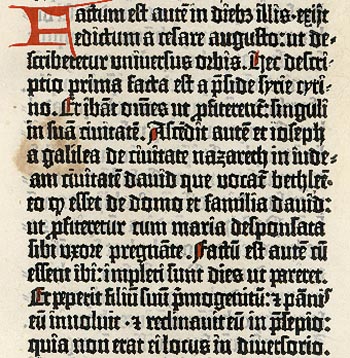 Factum est autē in diebꝫ illis· exijt
edictum a cesare augusto: ut de-
scriberetur universus orbis. Hec descri-
ptio prima facta est a p̄side syrie cyri-
no. Et ibāt om̄es ut p̄fiterent̄: singuli
in suā civitatē. Ascēdit autē et ioseph
a galilea de civitate nazareth in iude-
am civitatē david que vocat̄ bethleē·
eo ꝙ esset de domo et familia david:
ut p̄fiteretur cum maria desponsata
sibi uxore pregnāte. Factū est autē cū
essent ibi: impleti sunt dies ut pareret.
Et peperit filiū suū p̄mogenitū: ⁊ pānis
eū involvit· ⁊ reclinavit eū in p̄sepio:
quia non erat ei locus in diversorio.